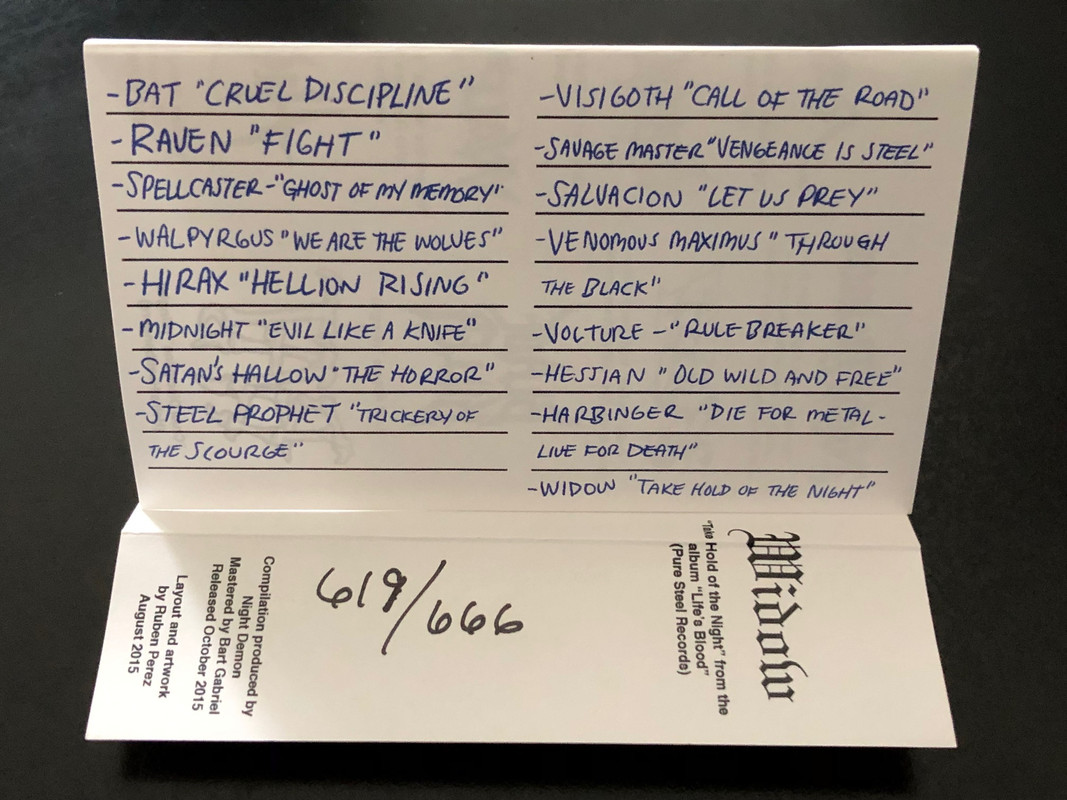 -BAT "CRUEL DISCIPLINE"
-RAVEN "FIGHT"
-SPELLCASTER-"GHOST OF MY MEMORY"
-WALPYRGUS "WE ARE THE WOLVES"
-HIRAX "HELLION RISING"
-MIDNIGHT "EVIL LIKE A KNIFE"
-SATAN'S HALLOW "THE HORROR"
-STEEL PROPHET "TRICKERY OF
THE SCOURGE"
-VISIGOTH "CALL OF THE ROAD"
-SAVAGE MASTER "VENGEANCE IS STEEL"
-SALVACION "LET US PREY"
-VENOMOUS MAXIMUS "THROUGH
THE BLACK"
-VOLTURE -"RULE BREAKER"
-HESSIAN "OLD WILD AND FREE"
-HARBINGER "DIE FOR METAL-
LIVE FOR DEATH"
-WIDOW "TAKE HOLD OF THE NIGHT"
Widow
"Take Hold of the Night" from the
album "Life's Blood"
(Pure Steel Records)
619/666
Compilation produced by
Night Demon
Mastered by Bart Gabriel
Released October 2015
Layout and artwork
by Ruben Perez
August 2015